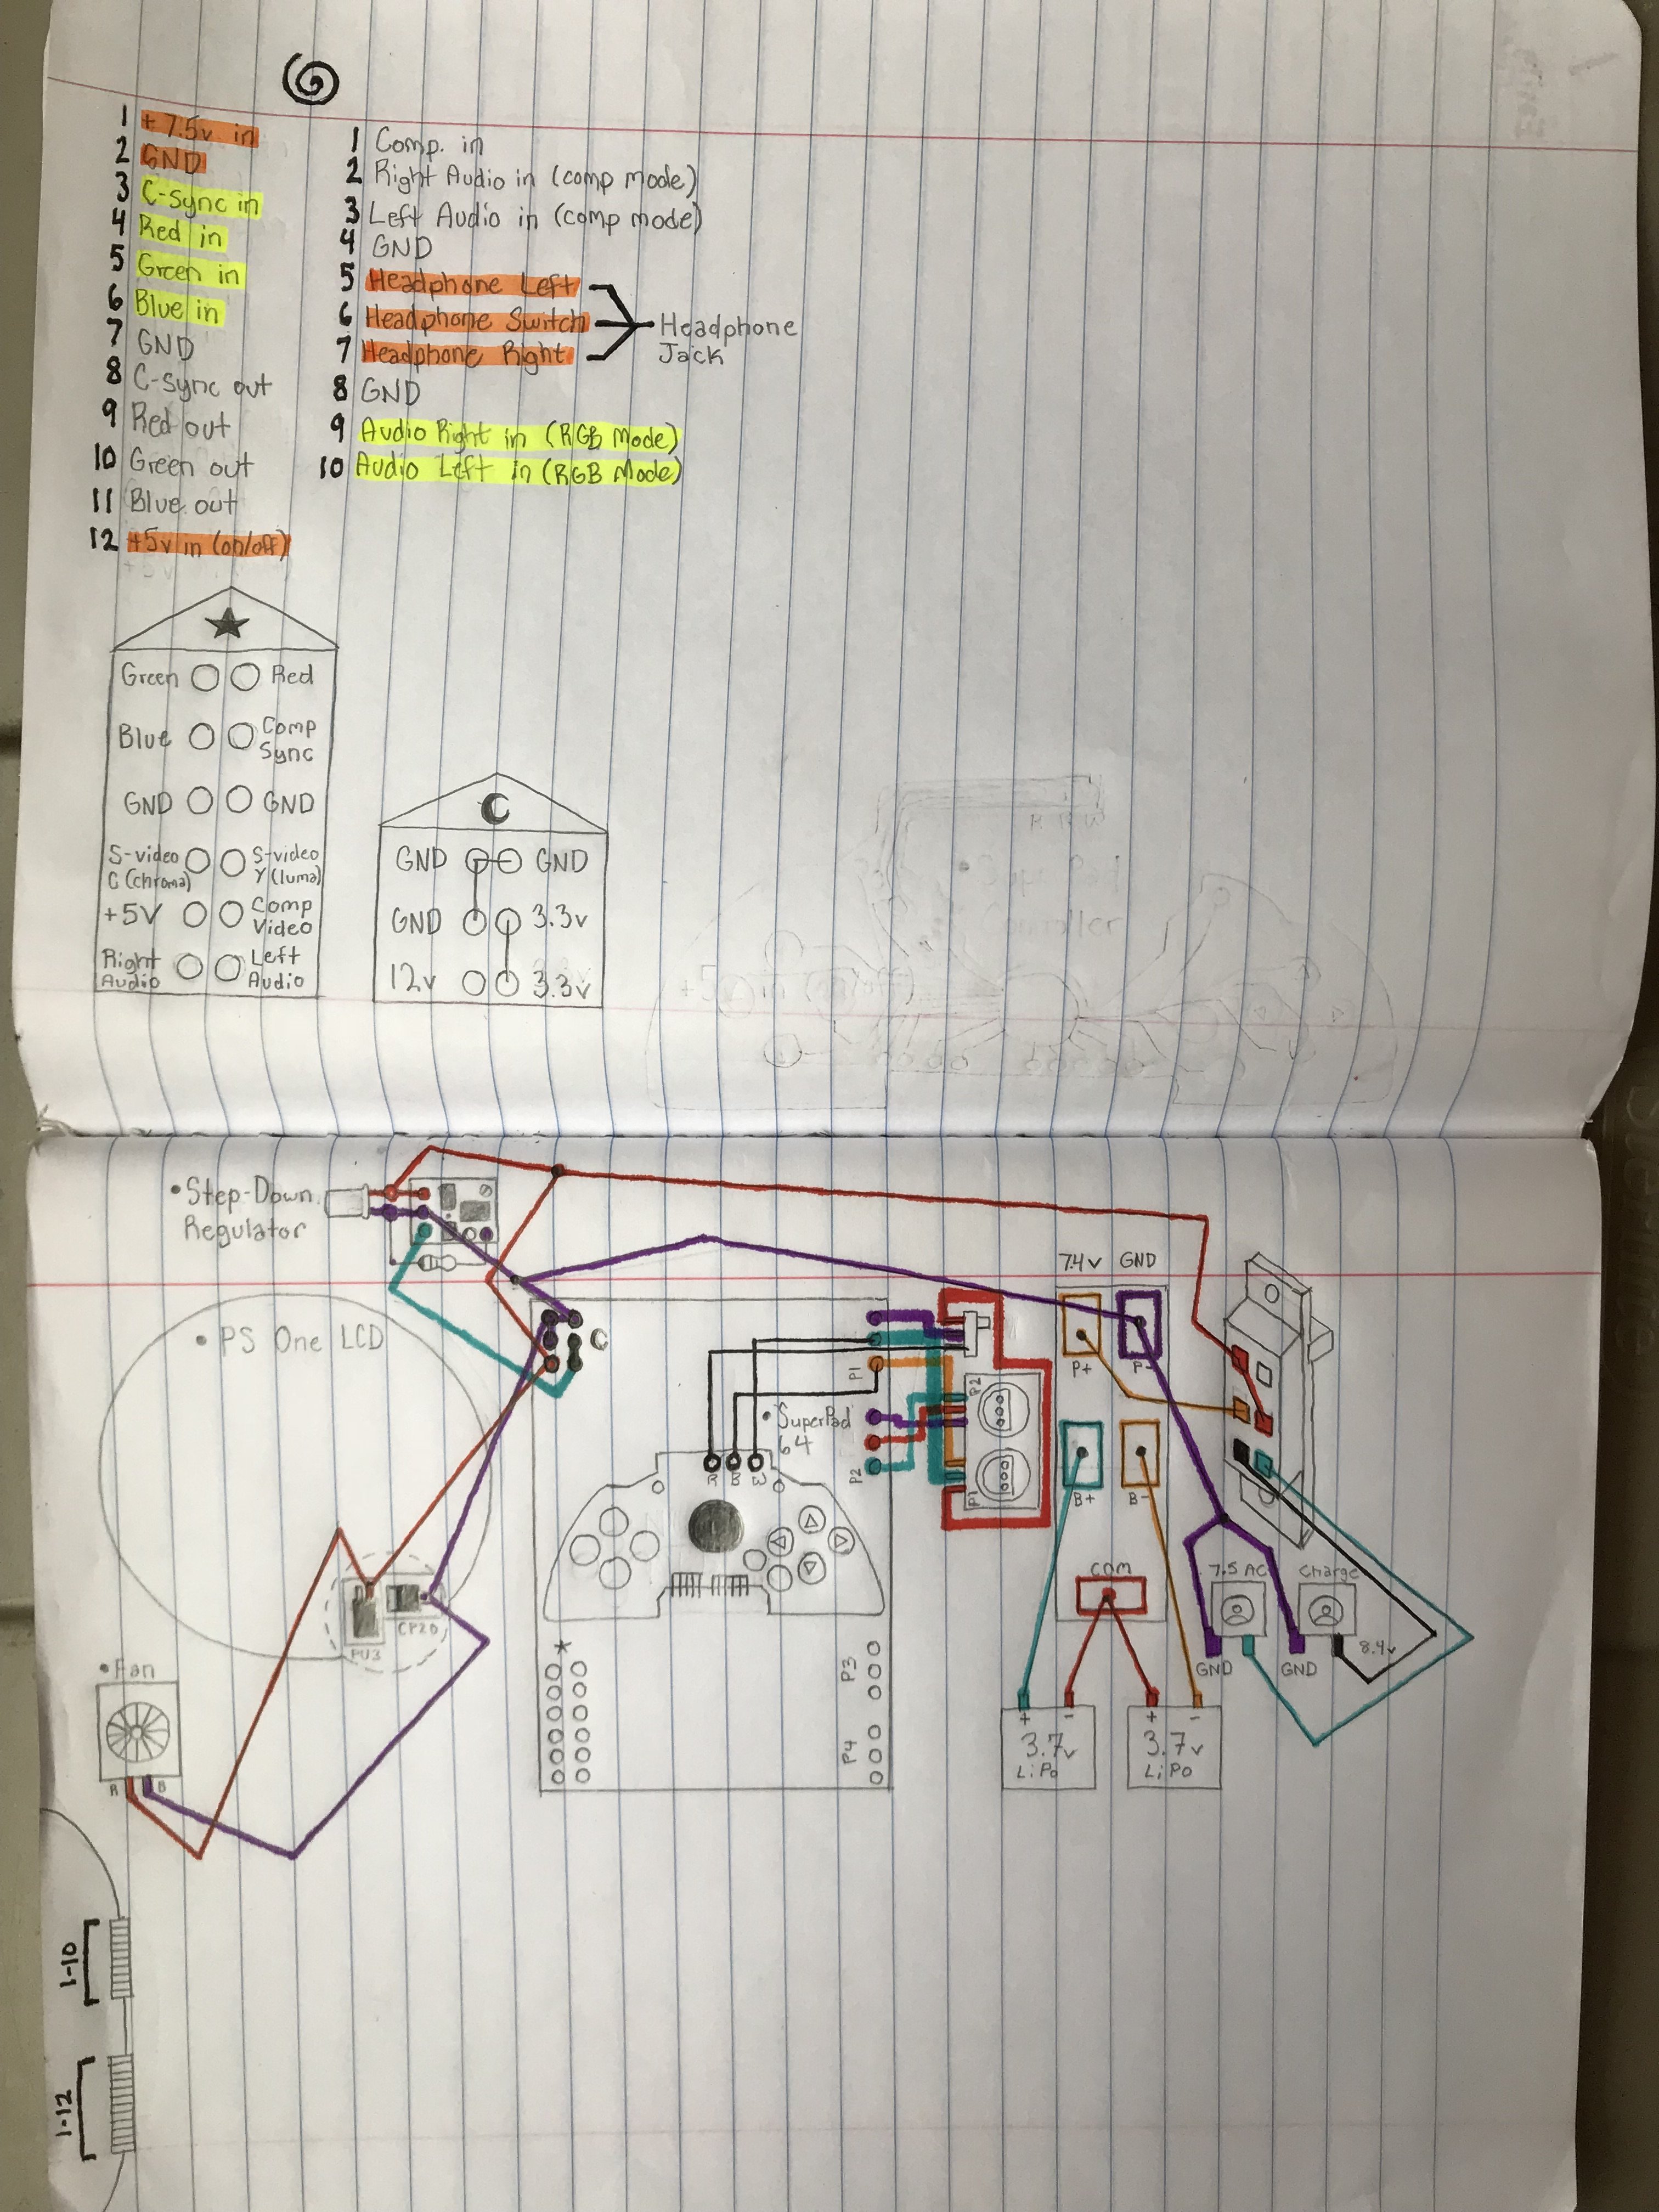 1 + 7.5v in
2 GND
3 C-Sync in
4 Red in
5 Green in
6 Blue in
7 GND
8 C-sync out
9 Red out
10 Green out
11 Blue out
12 +5v in (on/off)
1 Comp. in
2 Right Audio in (comp mode)
3 Left Audio in (comp mode)
4 GND
5 Headphone Left
6 Headphone Switch
7 Headphone Right
Headphone
Jack
8 GND
9 Audio Right in (RGB Mode)
10 Audio Left in (RGB Mode)
Green Red
Blue Comp
Sync
GND GND
S-video S-video
C (chroma) Y (luma)
+5V Comp
Video
Right Left
Audio Audio
GND GND
GND 3.3v
12v 3.3v
• Step-Down
Regulator
7.4v GND
• PS One LCD
P1
P2
P+ P-
• SuperPad
64
P2
R B W
P1
B+ B-
COM
7.5 AC Charge
CP20
PU3
GND GND 8.4v
• Fan
R B
P3
P4
+ - + -
3.7v 3.7v
LiPo LiPo
1-10
1-12